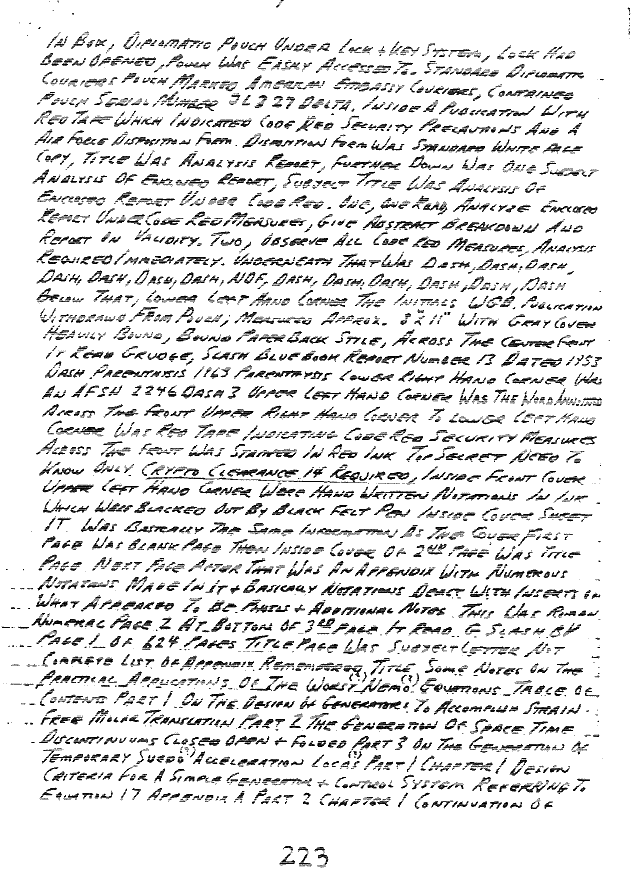 IN BOX, DIPLOMATIC POUCH UNDER LOCK + KEY SYSTEM, LOCK HAD
BEEN OPENED, POUCH WAS EASILY ACCESSED TO. STANDARD DIPLOMATIC
COURIERS POUCH MARKED AMERICAN EMBASSY COURIERS, CONTAINED
POUCH SERIAL NUMBER JL227 DELTA. INSIDE A PUBLICATION WITH
RED TAPE WHICH INDICATED CODE RED SECURITY PRECAUTIONS AND A
AIR FORCE DISPOSITION FORM. DISPOSITION FORM WAS STANDARD WHITE PAGE
COPY, TITLE WAS ANALYSIS REPORT, FURTHER DOWN WAS ONE SUBJECT
ANALYSIS OF ENCLOSED REPORT, SUBJECT TITLE WAS ANALYSIS OF
ENCLOSED REPORT UNDER CODE RED. ONE, ONE READ, ANALYZE ENCLOSED
REPORT UNDER CODE RED MEASURES, GIVE ABSTRACT BREAKDOWN AND
REPORT ON VALIDITY. TWO, OBSERVE ALL CODE RED MEASURES, ANALYSIS
REQUIRED IMMEDIATELY. UNDERNEATH THAT WAS DASH, DASH, DASH,
DASH, DASH, DASH, DASH, NOF, DASH, DASH, DASH, DASH, DASH, DASH
BELOW THAT, LOWER LEFT HAND CORNER THE INITIALS WGB. PUBLICATION
WITHDRAWN FROM POUCH; MEASURED APPROX. 8"X11" WITH GRAY COVER
HEAVILY BOUND, BOUND PAPER BACK STYLE, ACROSS THE CENTER FRONT
IT READ GRUDGE, SLASH BLUE BOOK REPORT NUMBER 13 DATED 1953
DASH PARENTHASIS 1963 PARENTHYSIS LOWER RIGHT HAND CORNER WAS
AN AFSN 2246 DASH 3 UPPER LEFT HAND CORNER WAS THE WORD ANNOTATED
ACROSS THE FRONT UPPER RIGHT HAND CORNER TO LOWER LEFT HAND
CORNER WAS RED TAPE INDICATING CODE RED SECURITY MEASURES
ACROSS THE FRONT WAS STAMPED IN RED INK TOP SECRET NEED TO
KNOW ONLY CRYPTO CLEARANCE 14 REQUIRED, INSIDE FRONT COVER
UPPER LEFT HAND CORNER WERE HAND WRITTEN NOTATIONS IN INK
WHICH WERE BLACKED OUT BY BLACK FELT PEN INSIDE COVER SHEET
IT WAS BASICALLY THE SAME INFORMATION AS THE COVER FIRST
PAGE WAS BLANK PAGE THEN INSIDE COVER OF 2ND PAGE WAS TITLE
PAGE NEXT PAGE AFTER THAT WAS AN APPENDIX WITH NUMEROUS
NOTATIONS MADE IN IT + BASICALLY NOTATIONS DEALT WITH INSERTS OF
WHAT APPEARED TO BE PHOTOS + ADDITIONAL NOTES THIS WAS ROMAN
NUMERAL PAGE 2 AT BOTTOM OF 3RD PAGE IT READ G SLASH BK
PAGE 1 OF 624 PAGES TITLE PAGE WAS SUBJECT LETTER NOT
COMPLETE LIST OF APPENDIX REMEMBERED, TITLE, SOME NOTES ON THE
PRACTICAL APPLICATIONS OF THE WORST(?) NEMO(?) EQUATIONS TABLE OF
CONTENTS PART 1 ON THE DESIGN OF GENERATORS TO ACCOMPLISH STRAIN
FREE MOLAR TRANSLATION PART 2 THE GENERATION OF SPACE TIME
DISCONTINUUMS CLOSED OPEN + FOLDED PART 3 ON THE GENERATION OF
TEMPORARY SUEDO(?) ACCELERATION LOCAS(?) PART 1 CHAPTER 1 DESIGN
CRITERIA FOR A SIMPLE GENERATOR + CONTROL SYSTEM REFERRING TO
EQUATION 17 APPENDIX A PART 2 CHAPTER 1 CONTINUATION OF
223